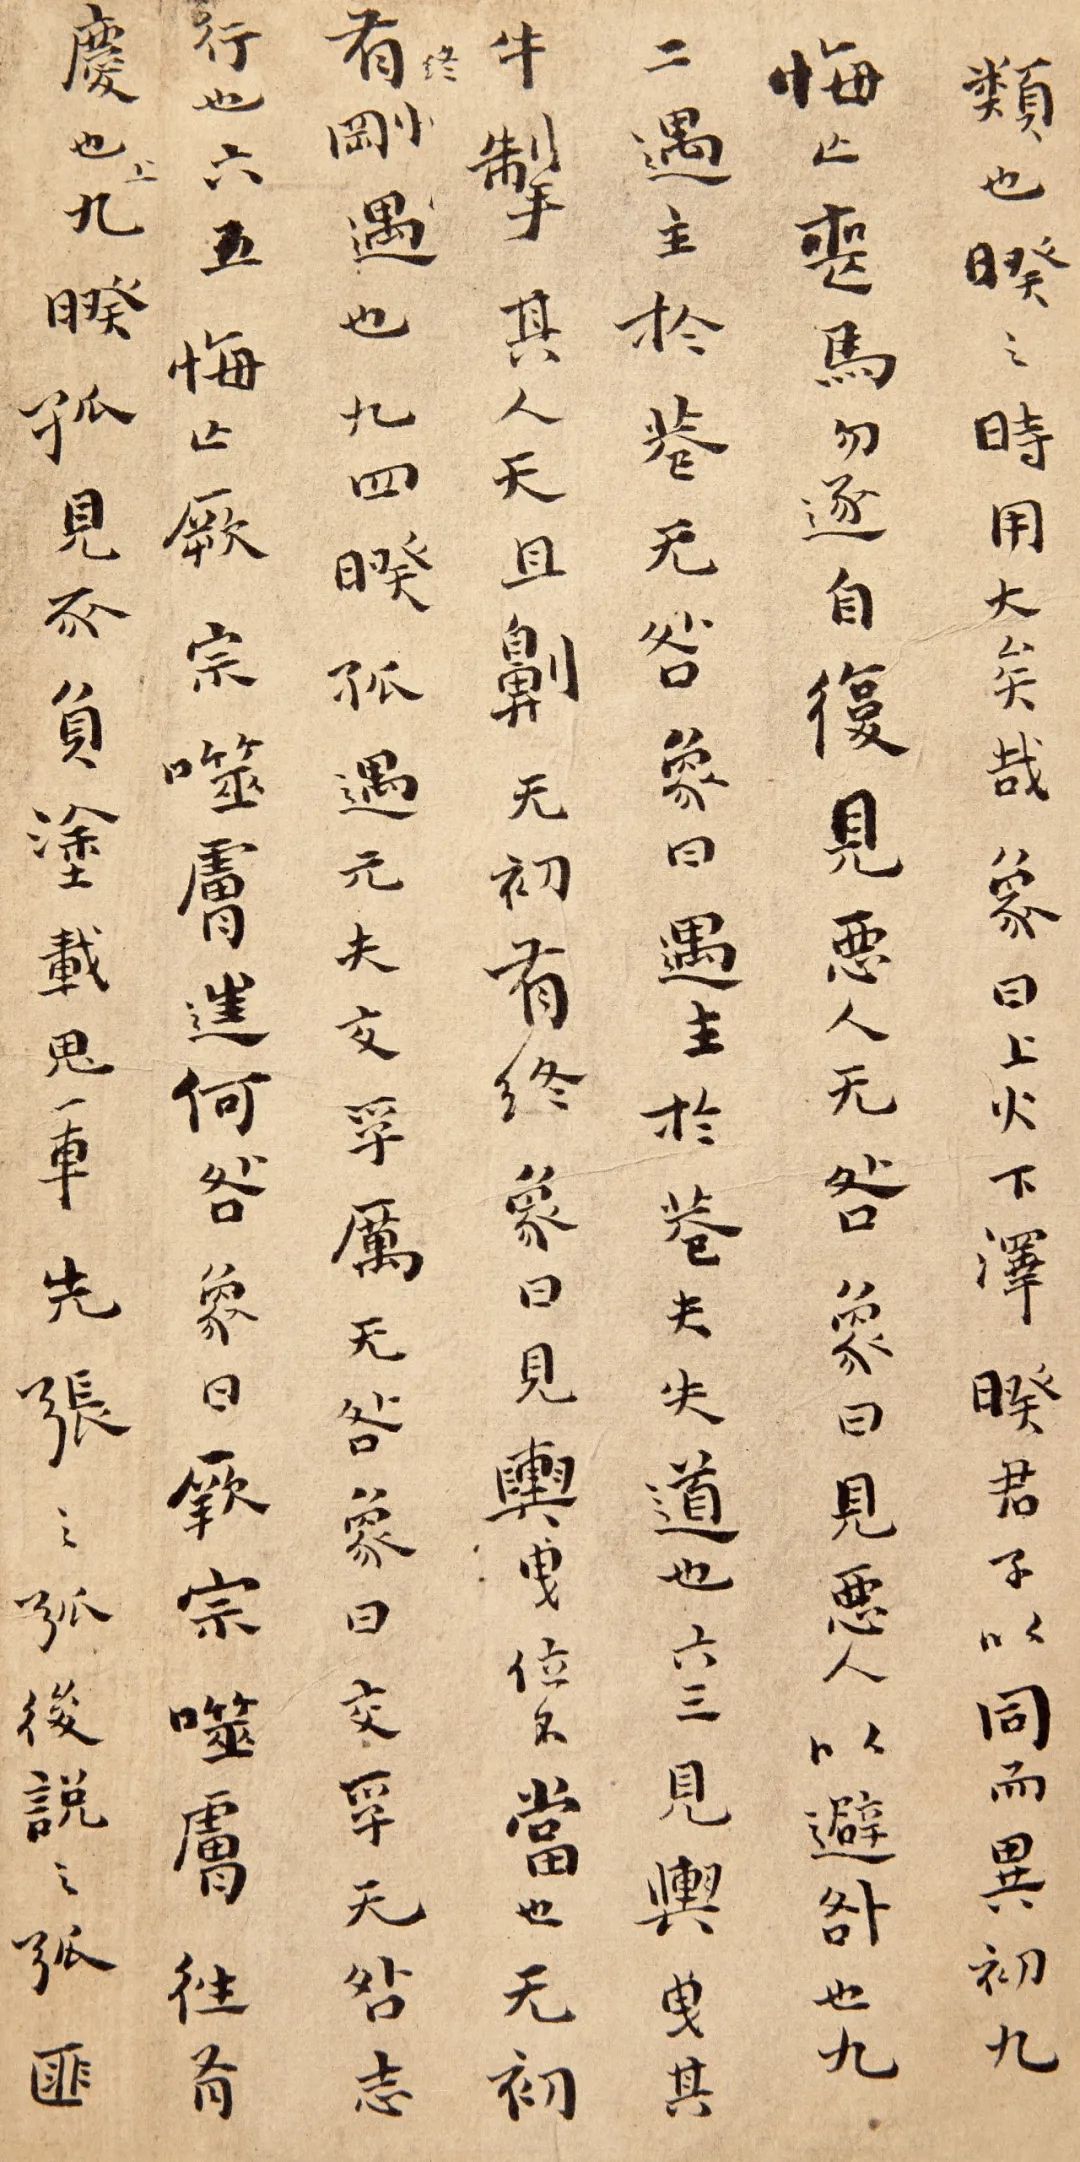 類也睽之時用大矣哉象曰上火下澤睽君子以同而異初九
悔亡喪馬勿逐自復見惡人无咎象曰見惡人以避咎也九
二遇主於巷无咎象曰遇主於巷未失道也六三見輿曳其
牛掣其人天且劓无初有終象曰見輿曳位不當也无初
有終剛遇也九四睽孤遇元夫交孚厲无咎象曰交孚无咎志
行也六五悔亡厥宗噬膚進何咎象曰厥宗噬膚往有
慶也上九睽孤見豕負塗載鬼一車先張之弧後說之弧匪